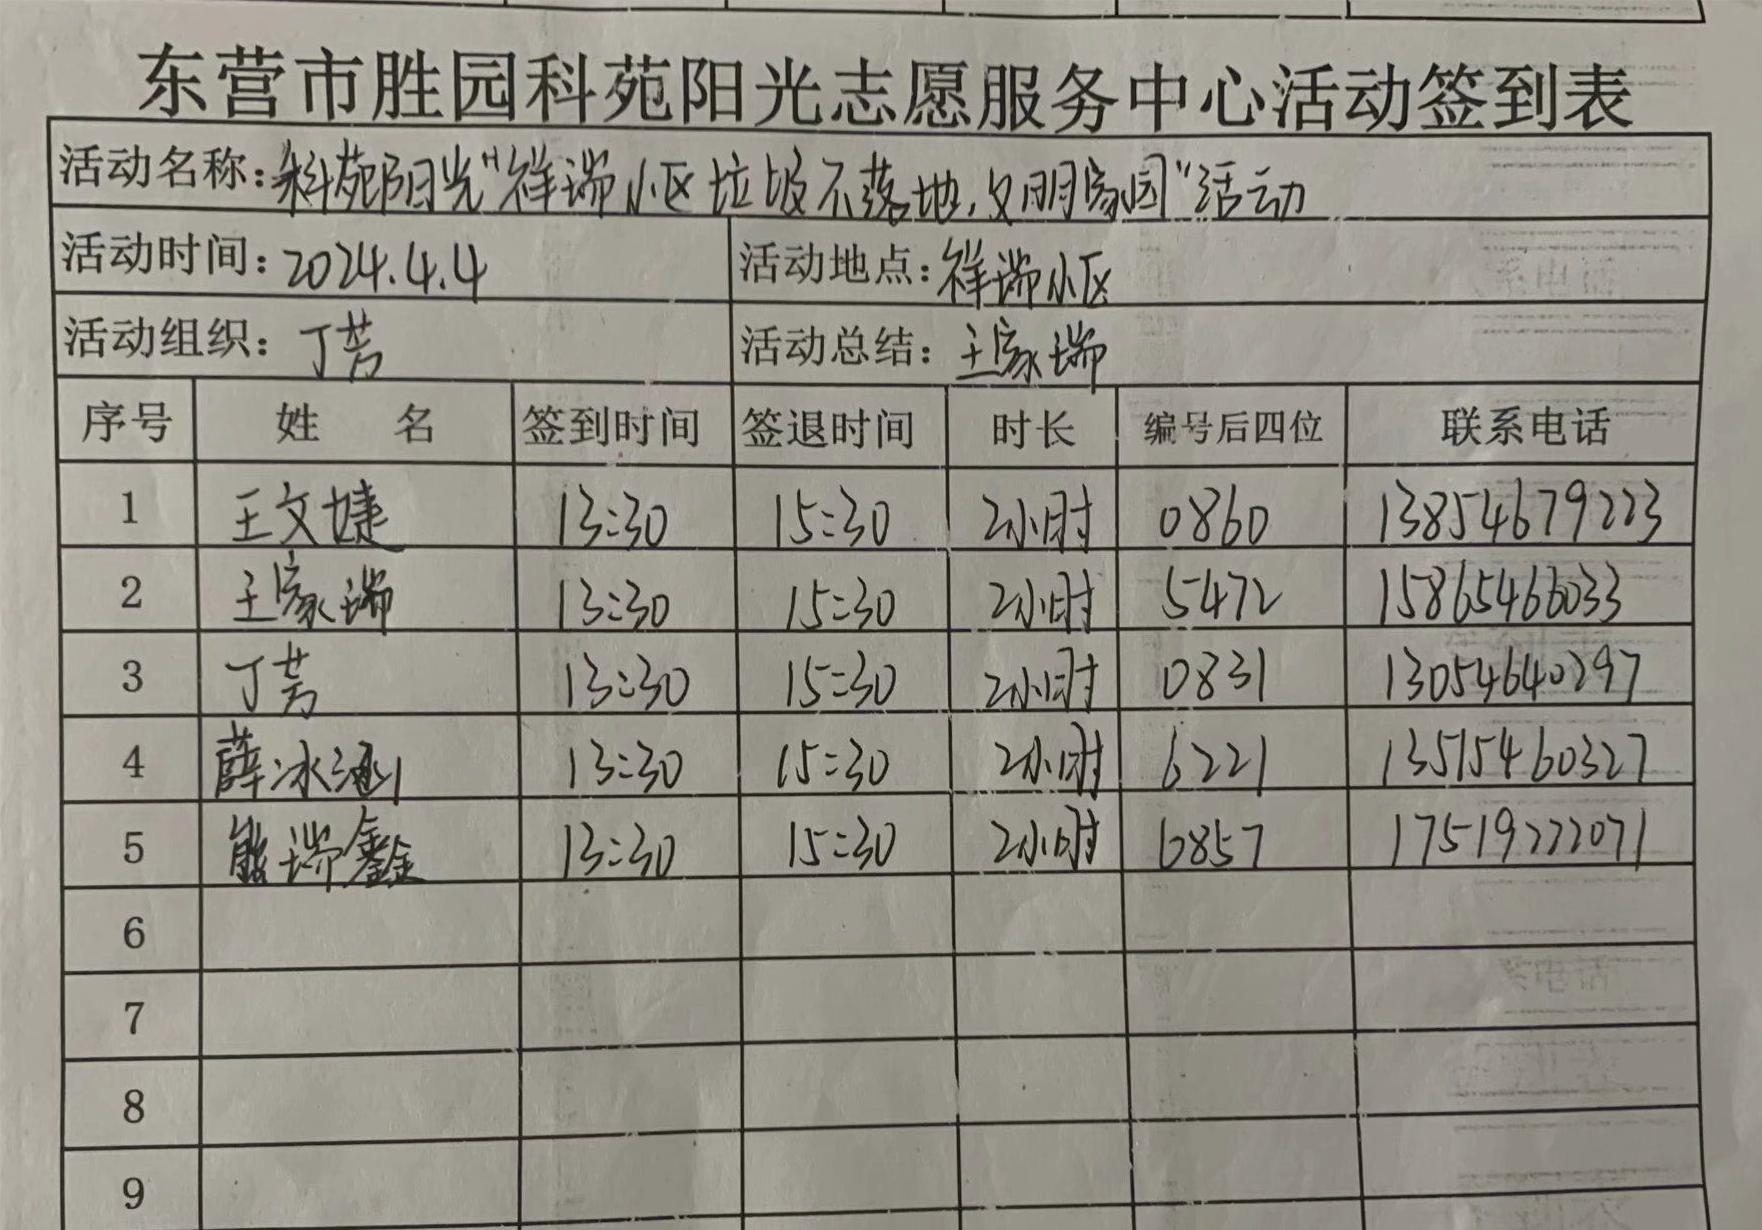 东营市胜园科苑阳光志愿服务中心活动签到表
活动名称:科苑阳光"祥瑞小区垃圾不落地,文明家园"活动
活动时间:2024.4.4 活动地点:祥瑞小区
活动组织:丁芳 活动总结:王家瑞
序号 姓 名 签到时间 签退时间 时长 编号后四位 联系电话
1 王文婕 13:30 15:30 2小时 0860 13854679223
2 王家瑞 13:30 15:30 2小时 5472 15865466033
3 丁芳 13:30 15:30 2小时 0831 13054640297
4 薛冰涵 13:30 15:30 2小时 6221 13515460327
5 熊瑞鑫 13:30 15:30 2小时 6857 17519222071
6
7
8
9